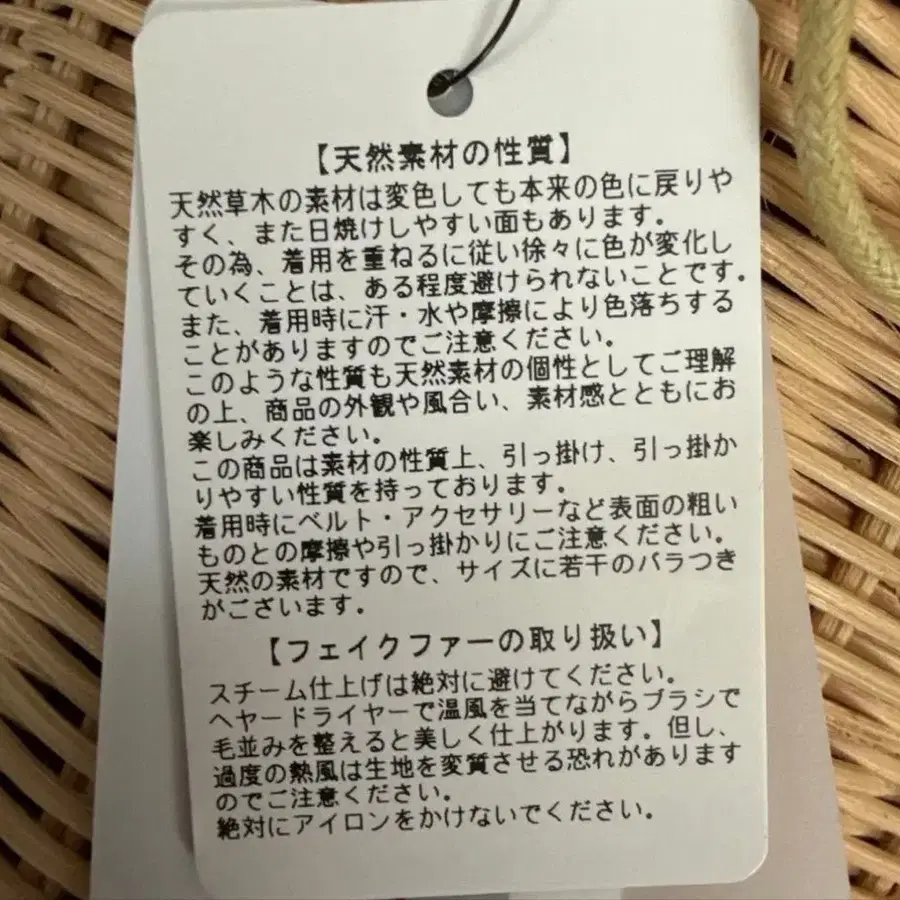 【天然素材の性質】
天然草木の素材は変色しても本来の色に戻りや
すく、また日焼けしやすい面もあります。
その為、着用を重ねるに従い徐々に色が変化し
ていくことは、ある程度避けられないことです。
また、着用時に汗・水や摩擦により色落ちする
ことがありますのでご注意ください。
このような性質も天然素材の個性としてご理解
の上、商品の外観や風合い、素材感とともにお
楽しみください。
この商品は素材の性質上、引っ掛け、引っ掛か
りやすい性質を持っております。
着用時にベルト・アクセサリーなど表面の粗い
ものとの摩擦や引っ掛かりにご注意ください。
天然の素材ですので、サイズに若干のバラつき
がございます。
【フェイクファーの取り扱い】
スチーム仕上げは絶対に避けてください。
ヘヤードライヤーで温風を当てながらブラシで
毛並みを整えると美しく仕上がります。但し、
過度の熱風は生地を変質させる恐れがあります
のでご注意ください。
絶対にアイロンをかけないでください。